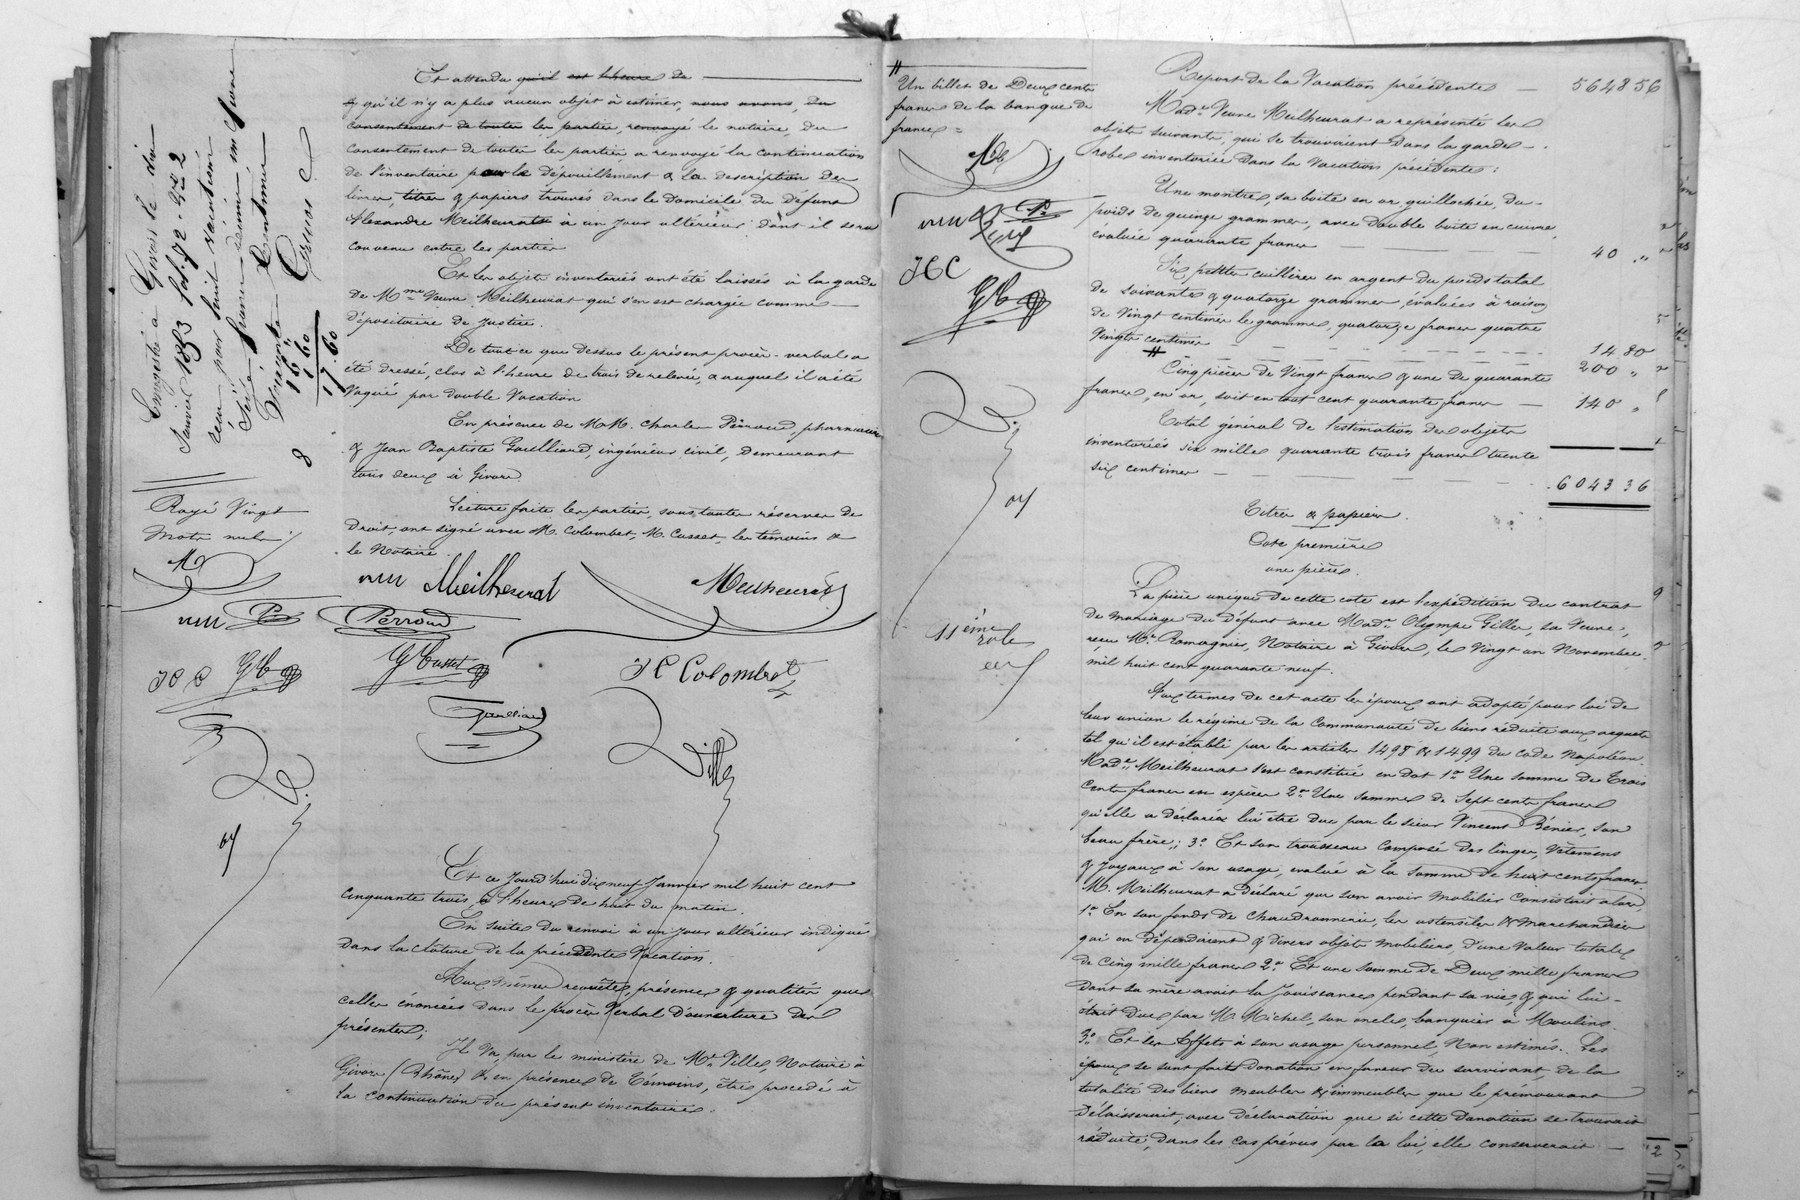 Et attendu qu'il est l'heure de
& qu'il n'y a plus aucun objet à estimer, nous avons, du
consentement de toutes les parties, renvoyé le notaire, du
consentement de toutes les parties a renvoyé la continuation
de l'inventaire pour le dépouillement & la description des
livres, titres & papiers trouvés dans le domicile du défunt
Alexandre Meilheurat à un jour ultérieur dont il sera
convenu entre les parties
Et les objets inventoriés ont été laissés à la garde
de Mme Veuve Meilheurat qui s'en est chargée comme
dépositaire de justice.
De tout ce que dessus le présent procès-verbal a
été dressé, clos à l'heure de trois de relevée, & auquel il a été
vaqué par double vacation
En présence de MM. Charles Perroud, pharmacien
& Jean Baptiste Gouilliard, ingénieur civil, demeurant
tous deux à Givors
Lecture faite les parties, sous toutes réserves de
droit, ont signé avec M. Colombet, M. Cusset, les témoins &
le Notaire
Enregistré à Givors le dix
Janvier 1853 fol. 72
reçu pour huit vacations
seize francs
centimes
16 "
1 60
17. 60
8
Rayé Vingt
mots nuls
vuu Meilheurat
Meilheurat
vuu P.
Perroud
JCC GC
G Cusset
JC Colombet
Gouilliard
Ville
Et ce jourd'hui dix neuf Janvier mil huit cent
cinquante trois, à l'heure de huit du matin.
En suite du renvoi à un jour ultérieur indiqué
dans la clôture de la précédente vacation.
Aux mêmes requêtes, présences & qualités que
celles énoncées dans le procès verbal d'ouverture des
présentes;
Il va, par le ministère de Me Ville, Notaire à
Givors (Rhône) & en présence de témoins, être procédé à
la continuation du présent inventaire.
#
Un billet de Deux cents
francs de la banque de
france =
vuu
P.
JCC
GC
11ème
role
Report de la Vacation précédente — 5648 56
Made Veuve Meilheurat a représenté les
objets suivants, qui se trouvaient dans la garde-
robe inventoriée dans la vacation précédente:
Une montre, sa boite en or, guillochée, du
poids de quinze grammes, avec double boite en cuivre,
évaluée quarante francs — 40 "
Six petites cuillères en argent du poids total
de soixante & quatorze grammes, évaluées à raison
de vingt centimes le gramme, quatorze francs quatre
vingts centimes 14 80
# 200 "
Cinq pièces de vingt francs & une de quarante
francs, en or, soit en tout cent quarante francs — 140 "
Total général de l'estimation des objets
inventoriés six mille quarante trois francs trente
six centimes — 6043 36
Titres & papiers.
Cote première
une pièce.
La pièce unique de cette cote est l'expédition du contrat
de mariage du défunt avec Made Olympe Gillet, sa veuve,
reçu Me Romagnier, Notaire à Givors, le vingt un Novembre
mil huit cent quarante neuf.
Aux termes de cet acte les époux ont adopté pour loi de
leur union le régime de la communauté de biens réduite aux acquets
tel qu'il est établi par les articles 1498 & 1499 du code Napoléon.
Made Meilheurat s'est constitué en dot 1° Une somme de trois
cents francs en espèces 2° Une somme de sept cents francs
qu'elle a déclaré lui être due par le sieur Vincent Bénier, son
beau frère; 3° Et son trousseau composé des linges, vêtemens
& joyaux à son usage, évalué à la somme de huit cents francs.
M. Meilheurat a déclaré que son avoir mobilier consistait alors,
1° En son fonds de chaudronnerie, les ustensiles & marchandises
qui en dépendaient & divers objets mobiliers, d'une valeur totale
de cinq mille francs 2° Et une somme de Deux mille francs
dont sa mère avait la jouissance pendant sa vie & qui lui
était due par M. Michel, son oncle, banquier à Moulins.
3° Et les effets à son usage personnel, Non estimés. Les
époux se sont fait donation en faveur du survivant, de la
totalité des biens meubles & immeubles que le prémourant
délaisserait, avec déclaration que si cette donation se trouvait
réduite, dans les cas prévus par la loi, elle conserverait —